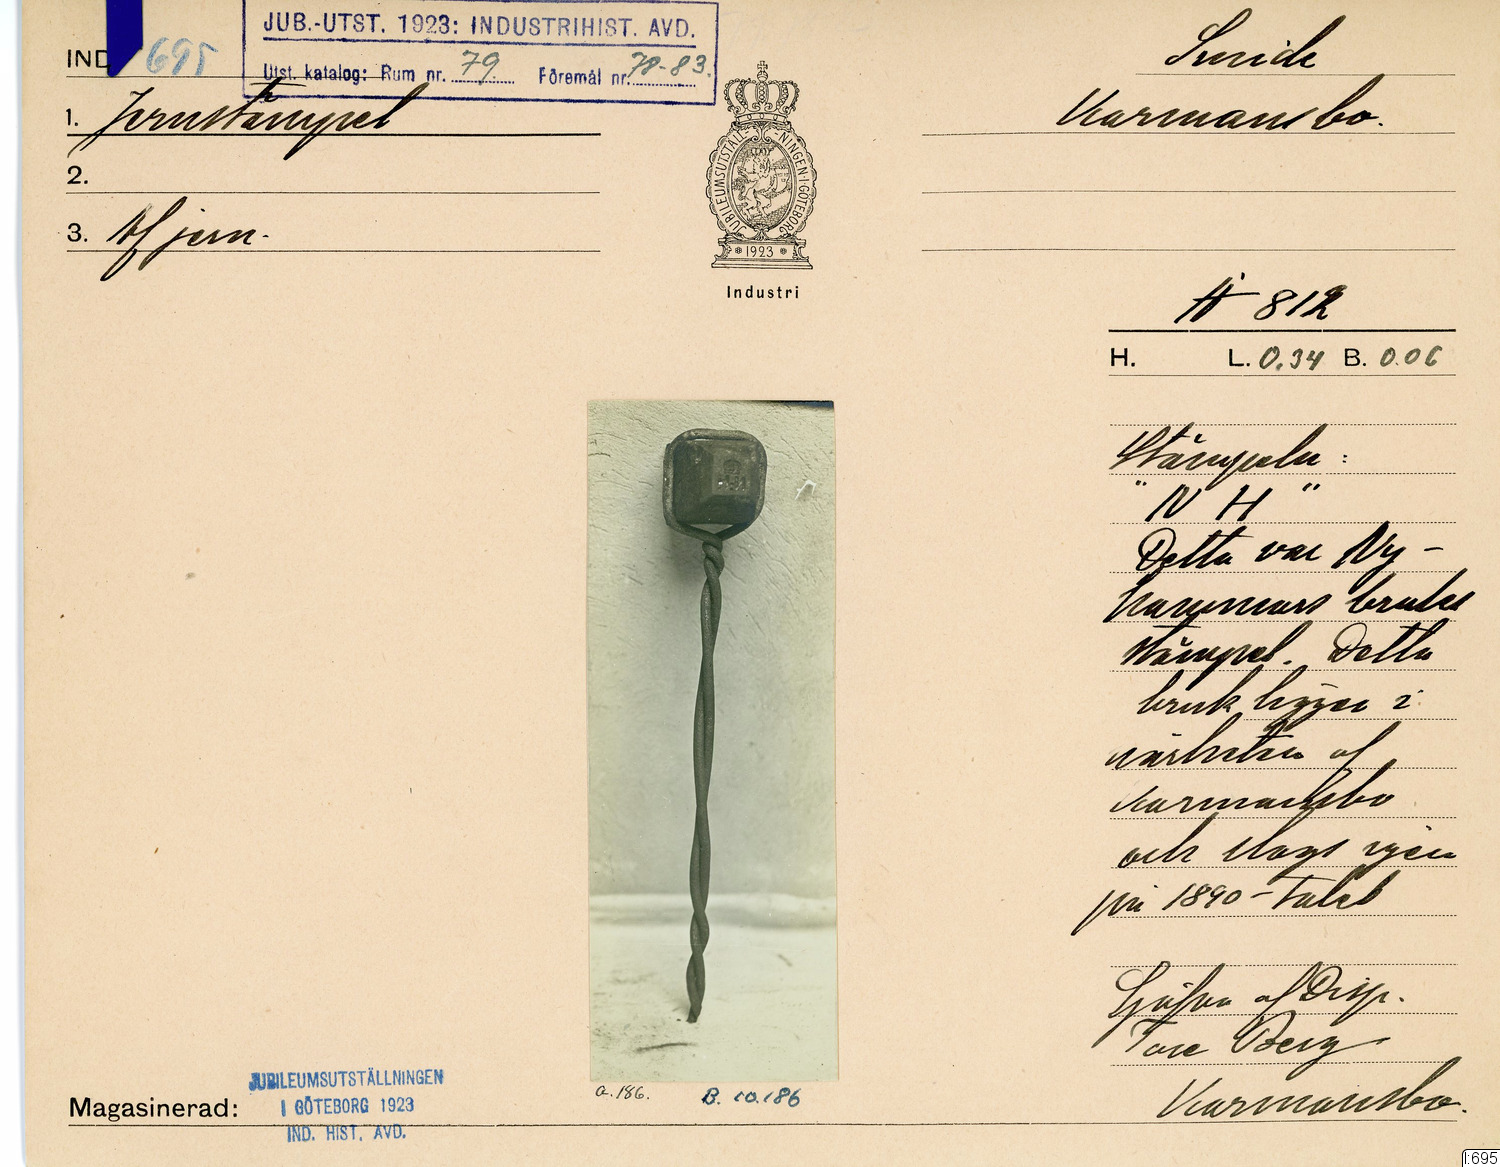 JUB.-UTST. 1923: INDUSTRIHIST. AVD.
Utst. katalog: Rum nr. 79 Föremål nr. 78-83.
IND 695
1. Jernstämpel
2.
3. Af jern.
JUBILEUMSUTSTÄLLNINGEN·I·GÖTEBORG
1923
Industri
Smide
Karmansbo.
812
H. L. 0.34 B. 0.06
Stämpeln:
"N H"
Detta var Ny-
hammars bruks
stämpel. Detta
bruk ligger i
närheten af
Karmansbo
och slogs igen
på 1890-talet
Gåfva af Disp.
Tore Berg
Karmansbo.
a.186.
B. 10.186
Magasinerad:
JUBILEUMSUTSTÄLLNINGEN
I GÖTEBORG 1923
IND. HIST. AVD.
I:695